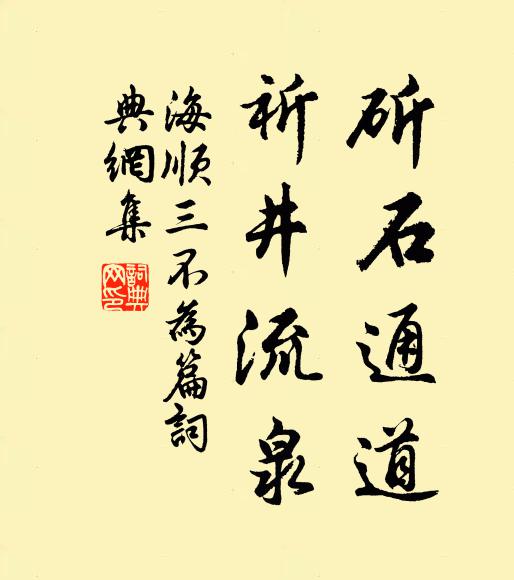 斫石通道
祈井流泉
海順三不為篇詞
典網集
詞典網印